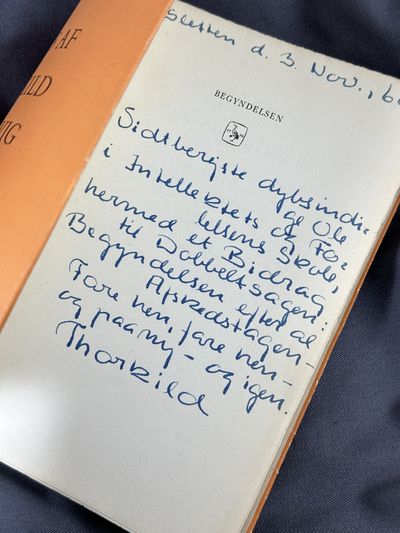 AF
ILD
IG
Sletten d. 3. Nov., 6
BEGYNDELSEN
Vidtberejste dybsindi=
ge Ole
i Intellektets og Fø=
lelsens Skole,
hermed et Bidrag
til Dobbeltsagen:
Begyndelsen efter al
Afskedstagen -
Fare hen, fare hen -
og paany - og igen.
Thorkild